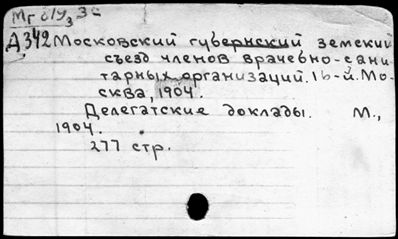 Д342 Московский губернский земский
съезд членов врачебно-сани
тарных организаций. 16-й. Мо-
сква, 1904.
Делегатские доклады. М.,
1904.
277 стр.